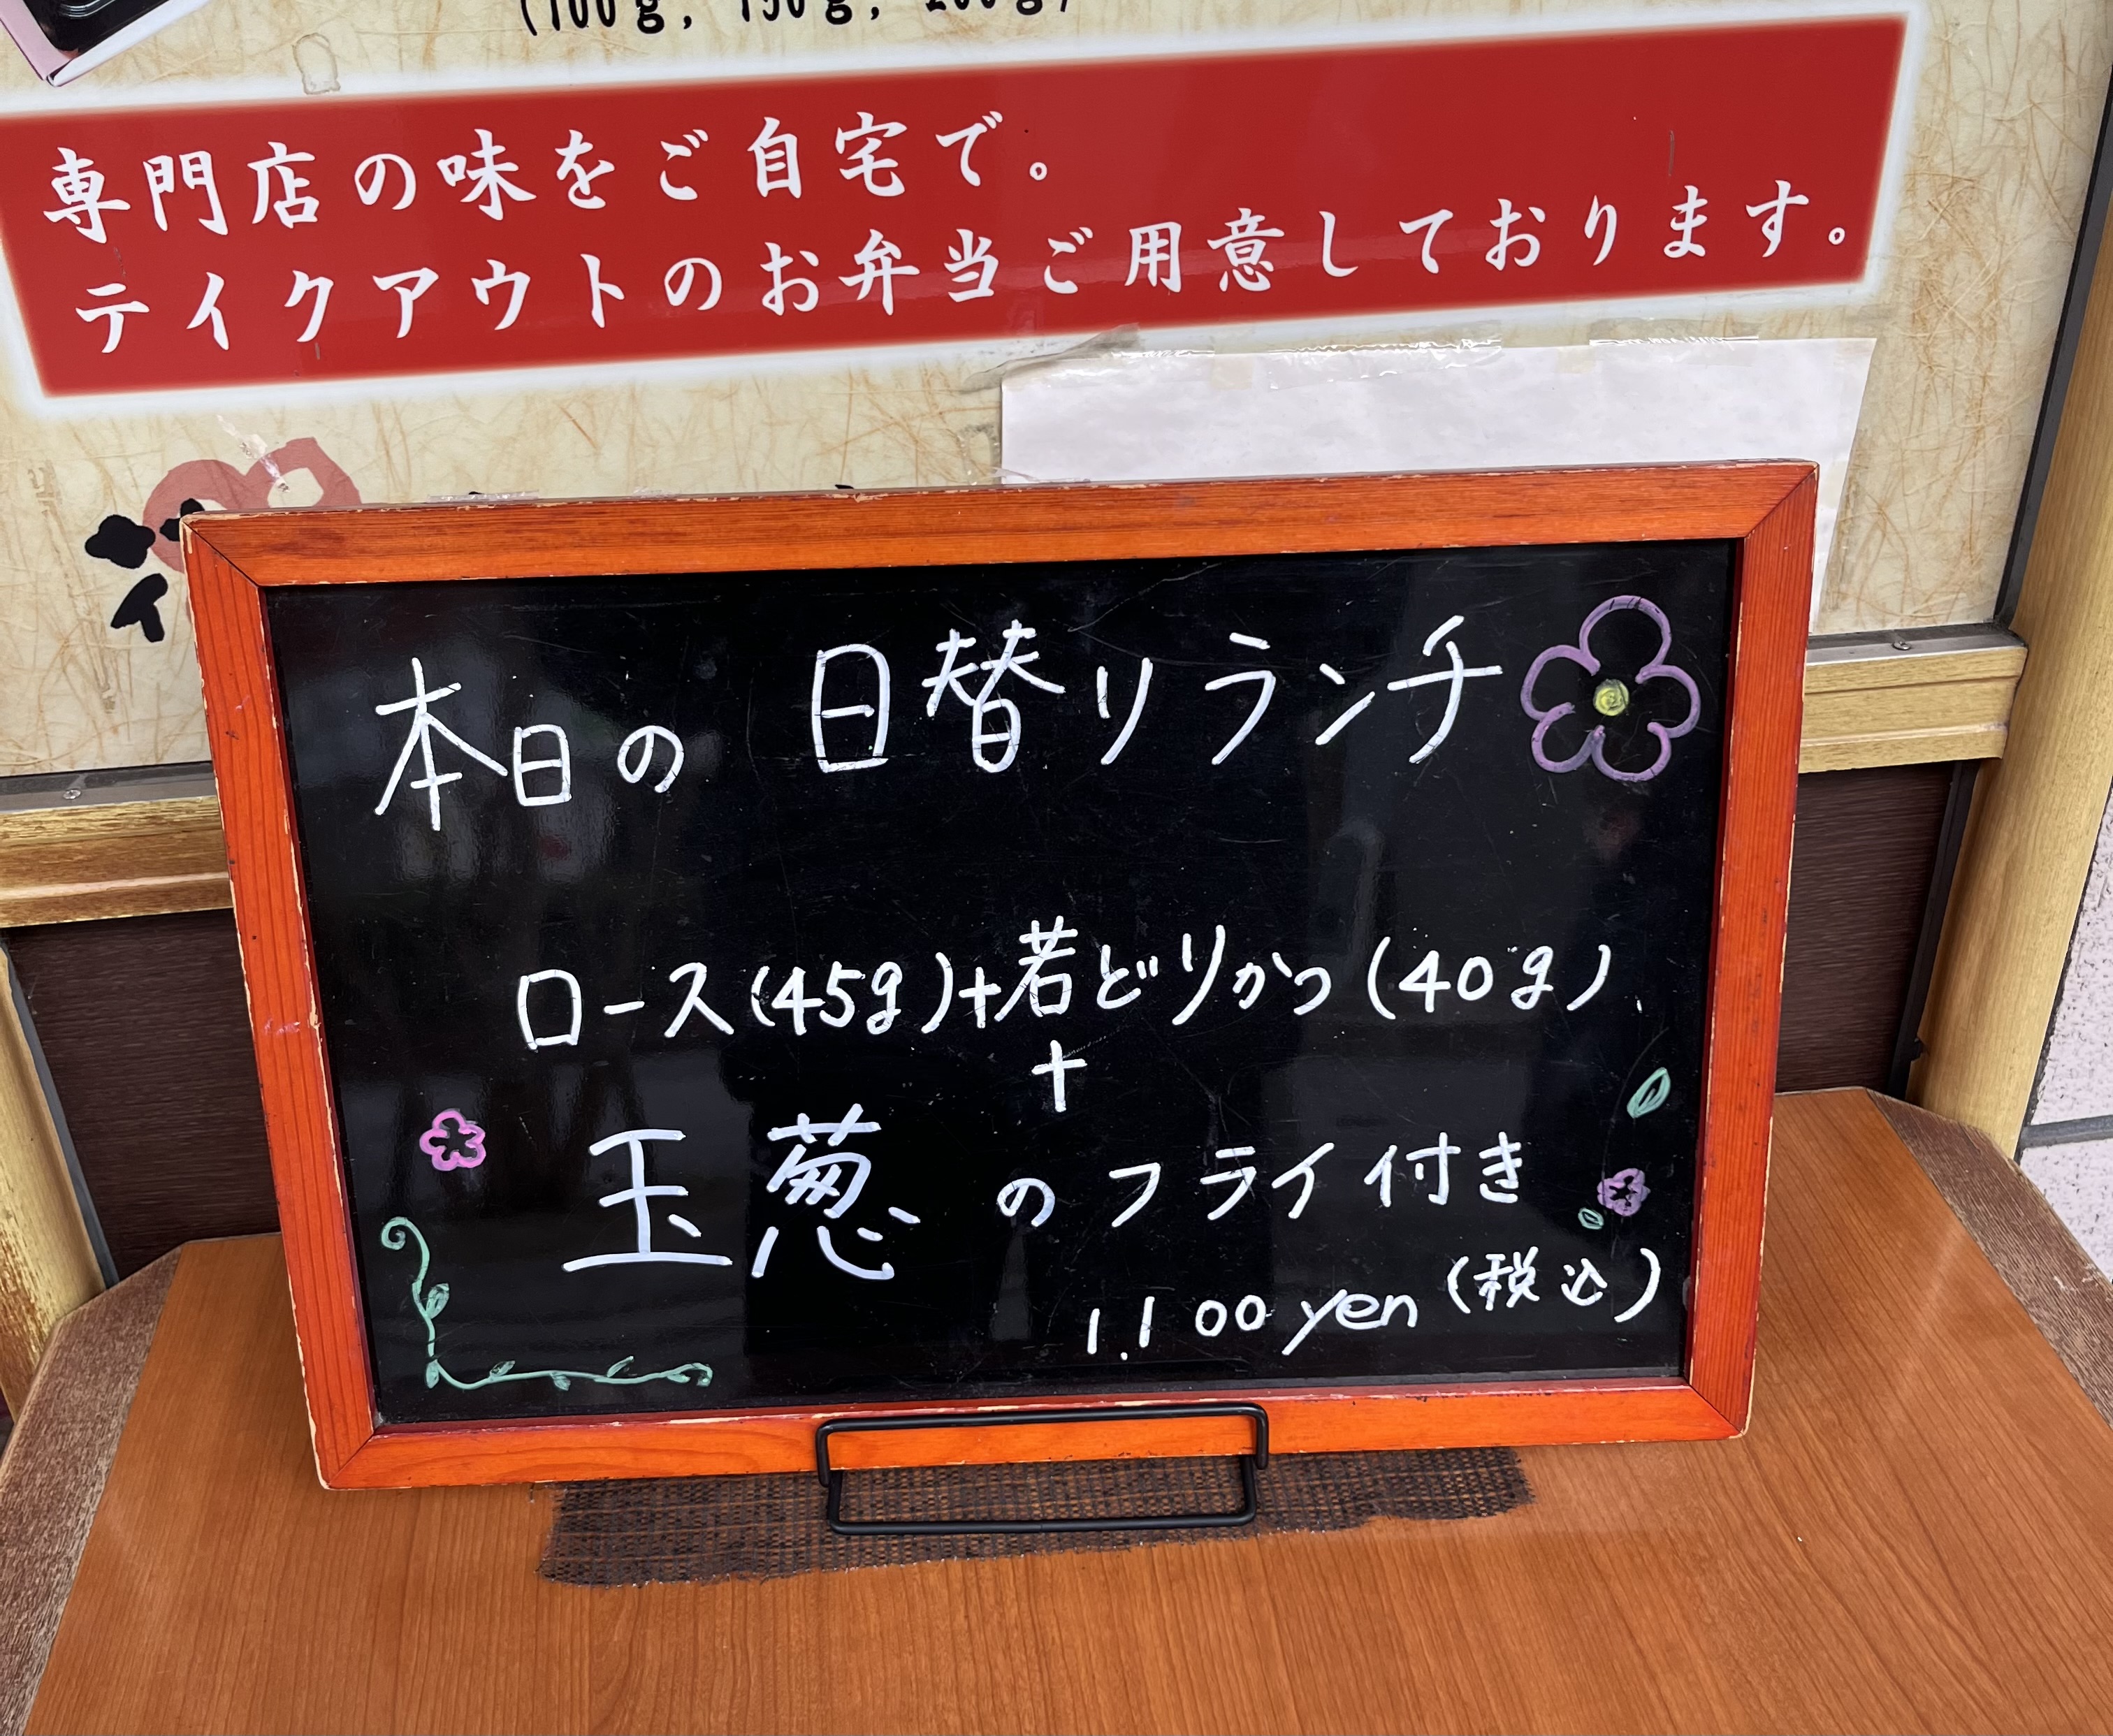 (100g, 150g, 200g)
専門店の味をご自宅で。
テイクアウトのお弁当ご用意しております。
本日の 日替りランチ
ロース(45g)+若どりかつ(40g)
+
玉葱のフライ付き
1,100yen(税込)